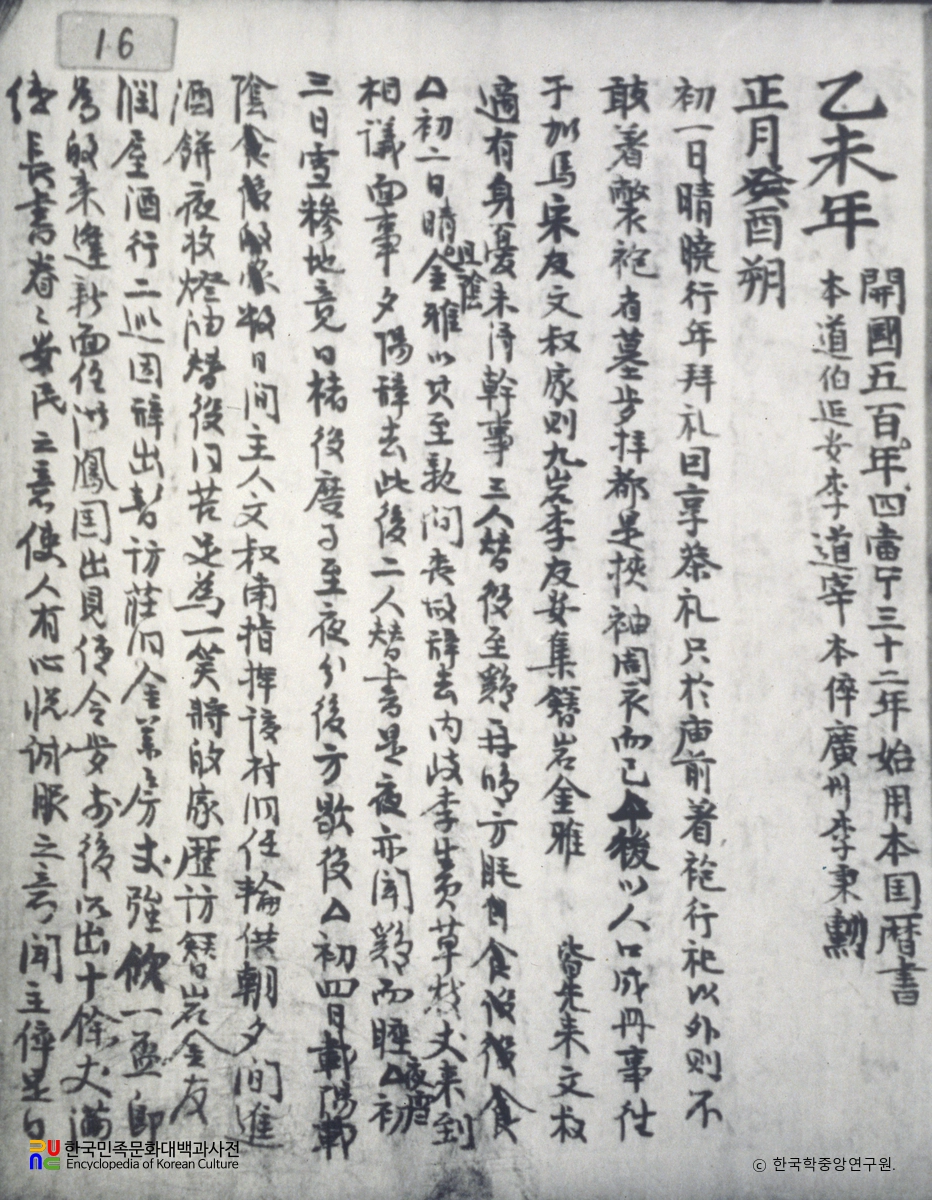 16
乙未年
開國五百年四當宁三十二年始用本国曆書
本道伯延安李道宰本倅廣州李秉勳
正月癸酉朔
初一日晴曉行年拜礼因享茶礼只於庙前着袍行祀以外則不
敢着氅袍省墓步拜都是挾袖周衣而已△午後以人口成冊事往
于加馬宋友文叔家則九岩李友安集簪岩金雅 皆先来文叔
適有身憂未得幹事三人替役至鷄再鳴方眠因食後食
△初二日晴金雅以只至歎問喪故辞去内岐李生員草栈丈来到
且陰
相議面事夕陽辞去此後二人替書是夜亦闻鷄而睡△初
夜雪
三日雪糝地竟日楮役磨了至夜分後方歇役△初四日載陽載
陰食后敀家数日间主人文叔南指揮該村旧任輪供朝夕间進
酒餅夜敀燈油替役河苦足為一笑将敀家歷訪簪岩金友
酒行二巡因辞出暫訪莊旧金 房丈強飲一盃即
敀来逢新面任洪鳳国出見传令步 後 出十餘丈满
長書眷〻安民之意使人有心悦诚服之 闻主倅是日
한국민족문화대백과사전
Encyclopedia of Korean Culture
© 한국학중앙연구원.